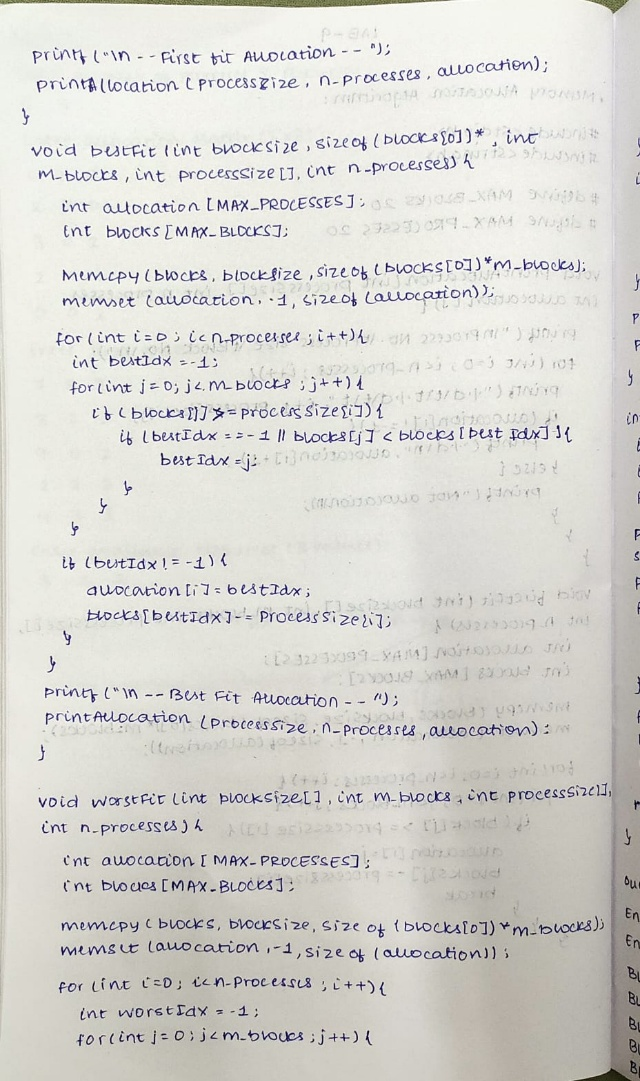 printf ("\n -- First fit Allocation -- ");
printAllocation (processsize, n-processes, allocation);
}
void bestFit (int blocksize, sizeof (blocks[0])*, int
m_blocks, int processSize[], int n-processes) {
int allocation [MAX_PROCESSES];
int blocks [MAX_BLOCKS];
memcpy (blocks, blocksize, sizeof (blocks[0])*m_blocks);
memset (allocation, -1, sizeof (allocation));
for (int i=0; i<n-processes; i++) {
int bestIdx = -1;
for (int j=0; j<m_blocks; j++) {
if (blocks[j] >= processSize[i]) {
if (bestIdx == -1 || blocks[j] < blocks[bestIdx]) {
bestIdx = j;
}
}
}
if (bestIdx != -1) {
allocation [i] = bestIdx;
blocks[bestIdx] -= ProcessSize[i];
}
}
printf ("\n -- Best Fit Allocation -- ");
printAllocation (processSize, n_processes, allocation);
}
void worstFit (int blocksize[], int m_blocks, int processSize[],
int n_processes) {
int allocation [MAX-PROCESSES];
int blocks [MAX_BLOCKS];
memcpy (blocks, blocksize, size of (blocks[0]) *m_blocks);
memset (allocation, -1, size of (allocation));
for (int i=0; i<n-processes; i++) {
int worstIdx = -1;
for (int j=0; j<m_blocks; j++) {